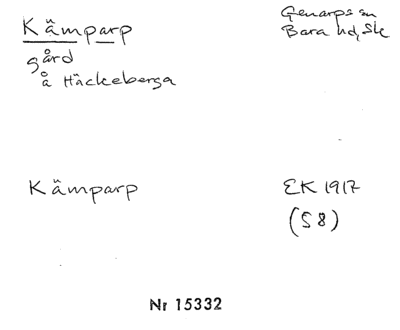 Kämparp
Genarps sn
Bara hd, Sk
gård
å Häckeberga
Kämparp
EK 1917
(S8)
Nr 15332